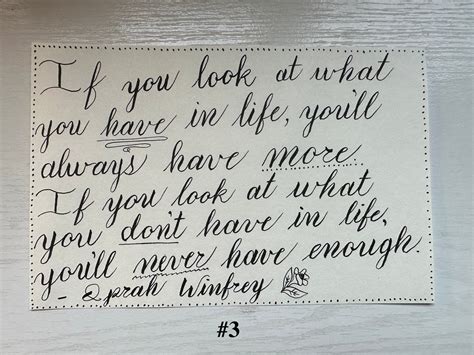 If you look at what
you have in life, you'll
always have more.
If you look at what
you don't have in life,
you'll never have enough.
- Oprah Winfrey
#3